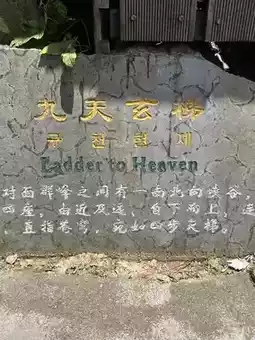 九天玄梯
구천현제
Ladder to Heaven
对面群峰之间有一南北向峡谷，
四座，由近及远、自下而上，连
，直指苍穹，宛如四步天梯。